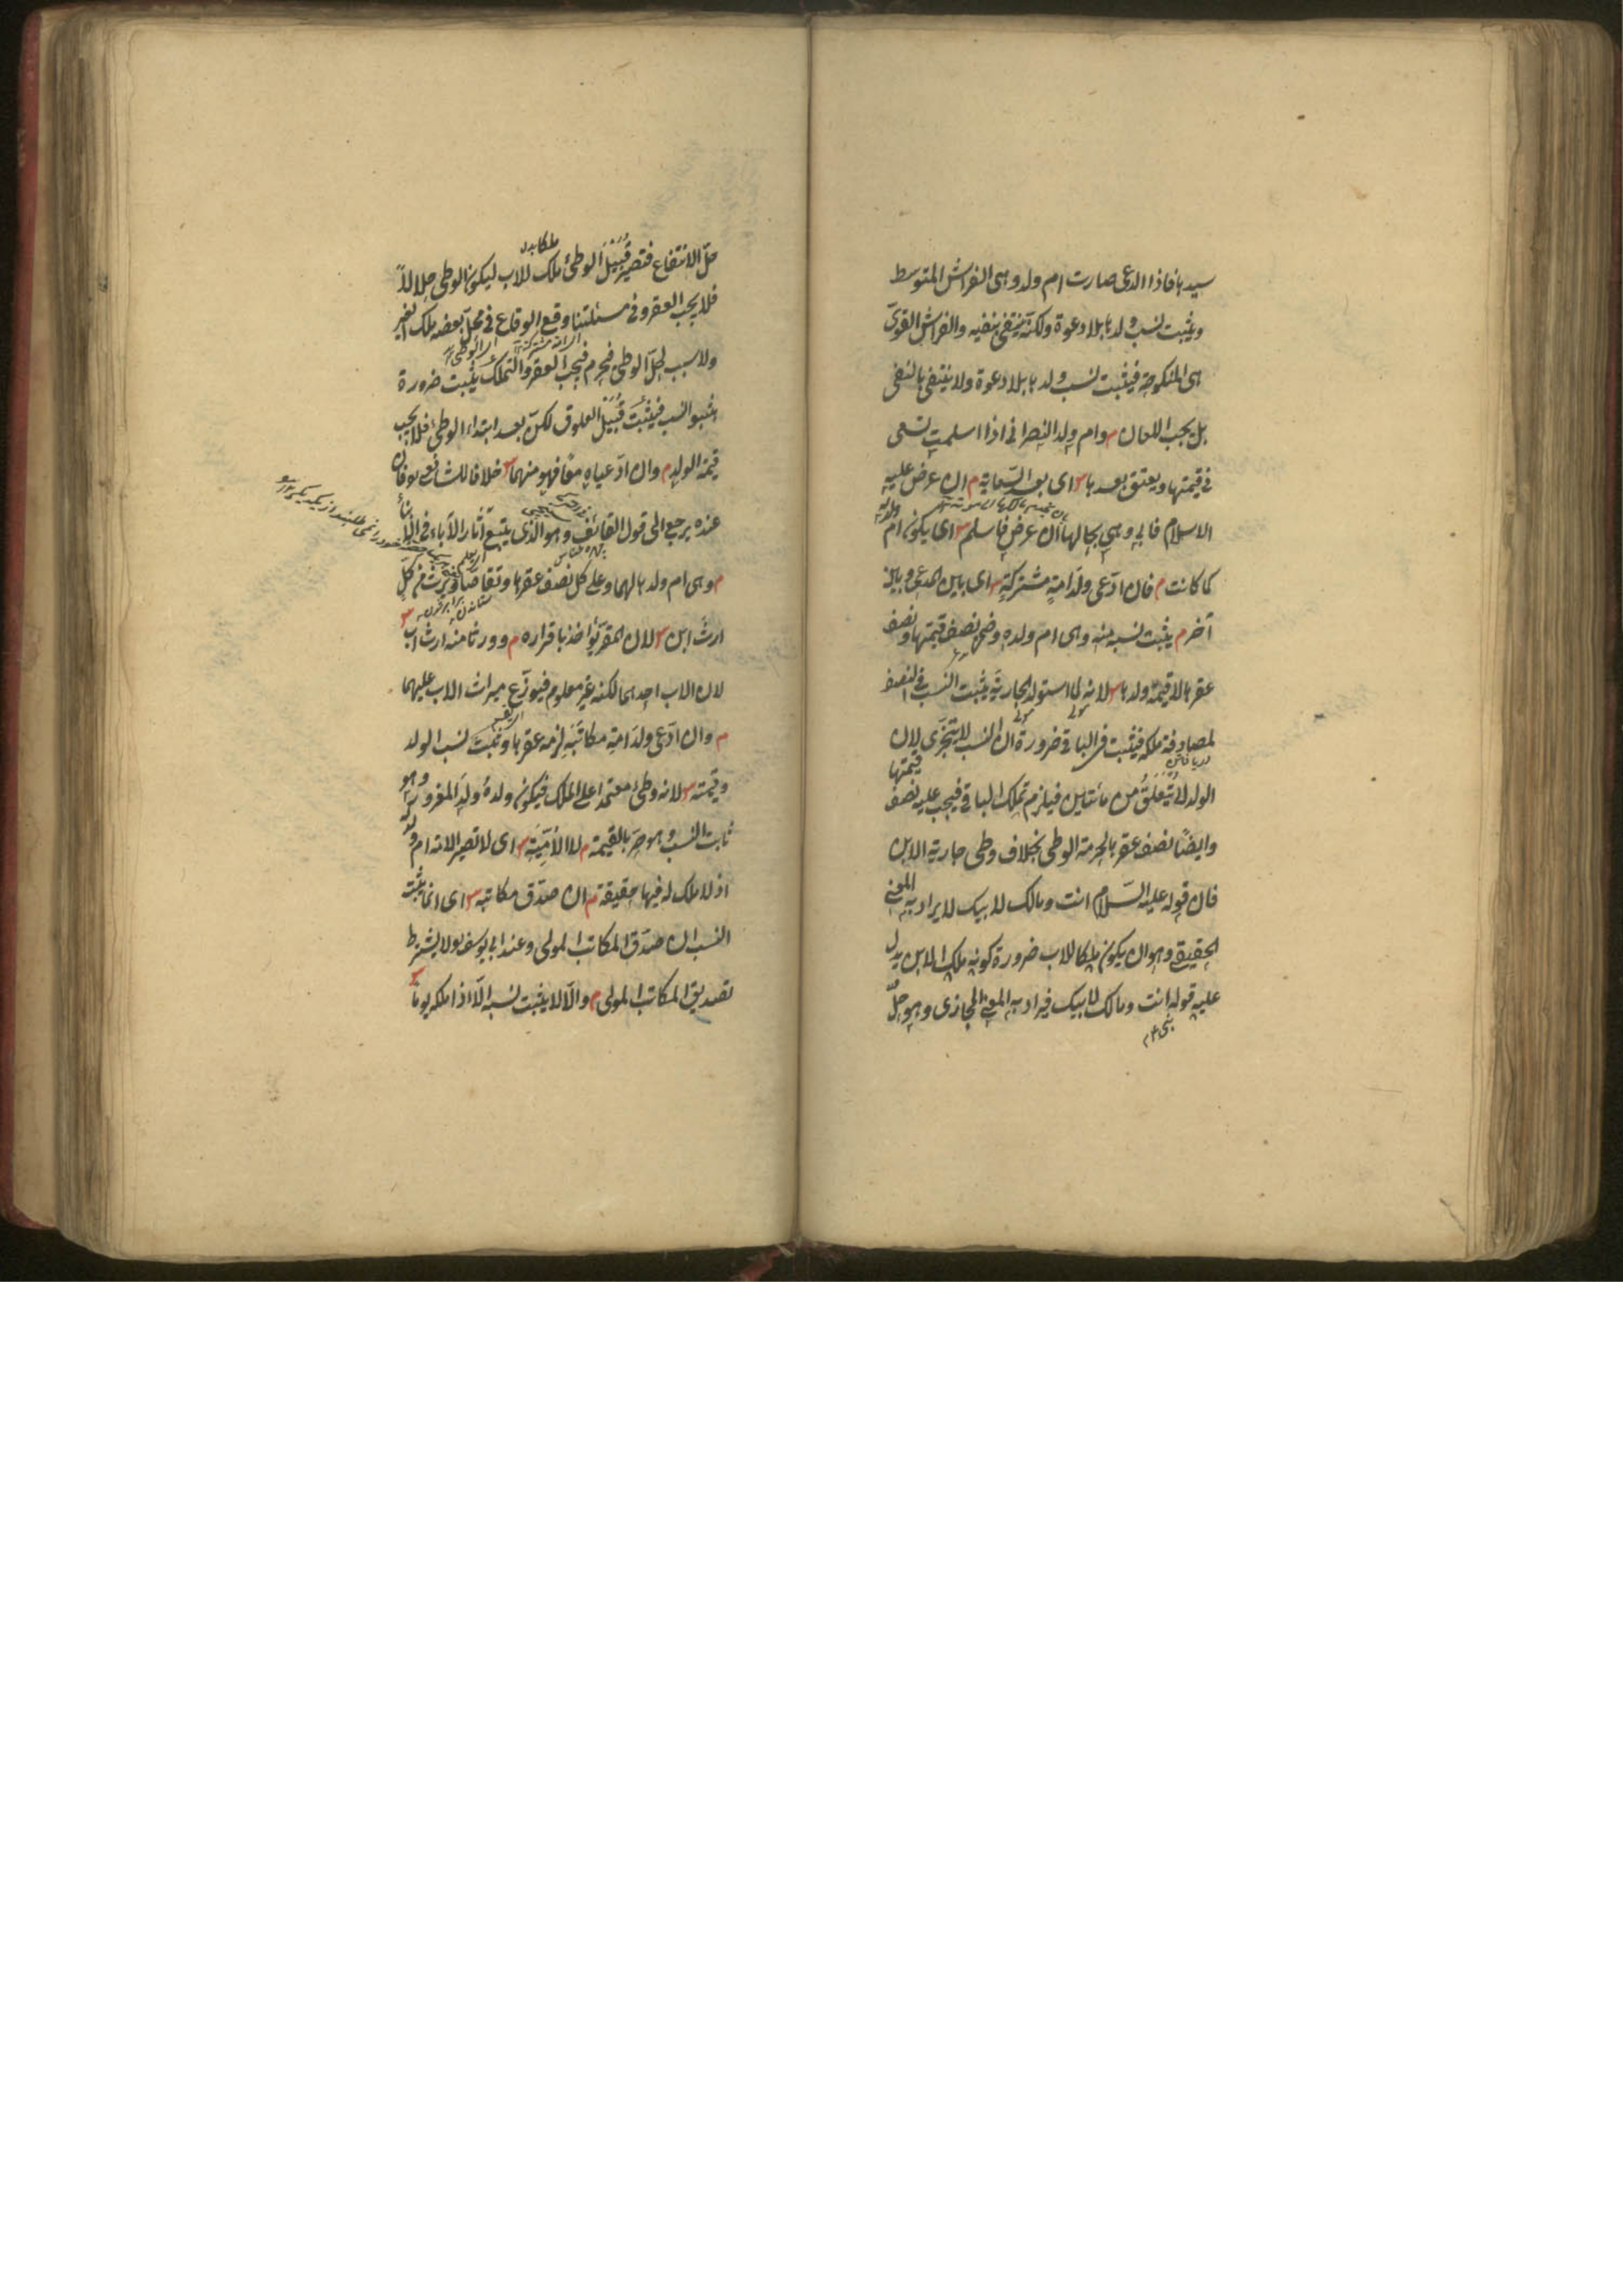 سيدها فاذا ادعى صارت ام ولد وهى الفراش المتوسط
ويثبت نسب ولدها بلا دعوة ولكنّه ينتفى بنفيه والفراش القوىّ
هى المنكوحة فيثبت نسب ولدها بلا دعوة ولا ينتفى بالنفى
بل يجب اللعان م وام ولد النصرانى اذا اسلمت تسعى
فى قيمتها ويعتق بعدها س اى بعد السّعاية م ان عرض عليه
الاسلام فابى وهى بحالها ان عرض فاسلم س اى يكون ام ولد له
كما كانت م فان ادّعى ولد امةٍ مشتركةٍ س اى بين المدعى وبين
آخر م يثبت نسبه منه وهى ام ولده وضمن نصف قيمتها ونصف
عقرها لا قيمة ولدها س لانه لما استولد الجارية يثبت النسب فى النصف
لمصادفة ملكه فيثبت فى الباقى ضرورة ان النسب لا يتجزى لان
الولد لا يتعلّق من مائين فيلزم تملك الباقى فيجب عليه نصف قيمتها
وايضًا نصف عقرها لحرمة الوطى بخلاف وطى جارية الابن
فان قوله عليه السّلام انت ومالك لابيك لا يراد به المعنى
الحقيقى وهو ان يكون ملكا للاب ضرورة كونه ملك الابن يدل
عليه قوله انت ومالك لابيك فيراد به المعنى المجازى وهو حلّ
حلّ الانتفاع فتصير قُبَيْل الوطئ ملك للاب ليكون الوطى حلالاً
فلا يجب العقر وفى مسئلتنا وقع الوقاع فى محلّ بعضه ملك الغير
ولا سبب لحلّ الوطى فيحرم فيجب العقر والتملك يثبت ضرورة
ثبوت النسب فيثبت قُبَيْل العلوق لكن بعد ابتداء الوطى فلا يجب
قيمة الولد م وان ادّعياه معًا فهو منهما س خلافا للشافعى فان
عنده يرجع الى قول القائف وهو الذى يتبع آثار الآباء فى الابناء
م وهى ام ولد لهما وعلى كل نصف عقرها وتقاصّا ويرث من كلّ
ارث ابن س لان المقر يؤاخذ باقراره م وورثا منه ارث اب س
لان الاب احدهما لكنه غير معلوم فيوزّع ميراث الاب عليهما
م وان ادّعى ولد امة مكاتَبه لزمه عقرها وثبت نسب الولد
وقيمته س لانه وطى معتمدا على الملك فيكون ولده ولد المغرور وهو
ثابت النسب وهو حرّ بالقيمة م لا الاُمّيّة س اى لا تصير الامة ام ولد له
اذ لا ملك له فيها حقيقة م ان صدّق مكاتبه س اى انما يثبت
النسب ان صدّق المكاتب المولى وعند ابى يوسف لا يشترط
تصديق المكاتب المولى م والّا لا يثبت نسبه الّا اذا ملكه يوما س